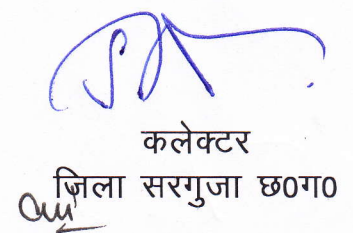 कलेक्टर
ज़िला सरगुजा छ0ग0